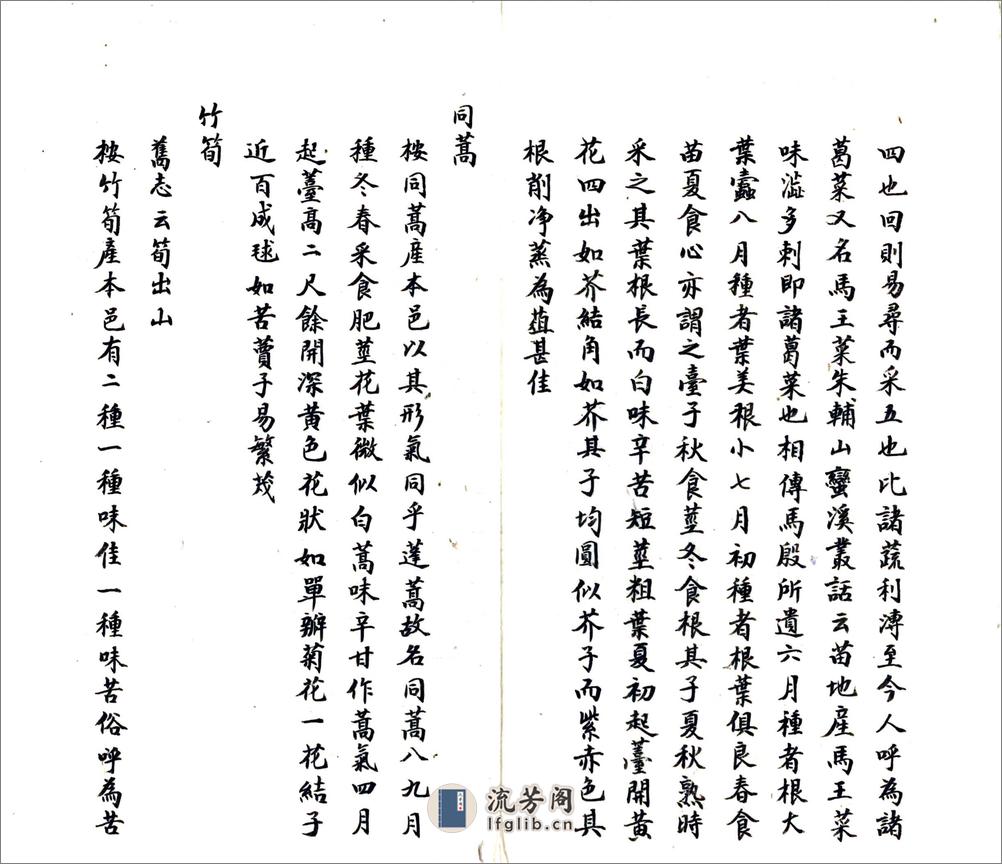 四也回則易尋而采五也比諸蔬利溥至今人呼為諸
葛菜又名馬王菜朱輔山蠻溪叢話云苗地產馬王菜
味澁多刺即諸葛菜也相傳馬殷所遺六月種者根大
葉蠹八月種者葉美根小七月初種者根葉俱良春食
苗夏食心亦謂之薹子秋食莖冬食根其子夏秋熟時
采之其葉根長而白味辛苦短莖粗葉夏初起薹開黃
花四出如芥結角如芥其子均圓似芥子而紫赤色其
根削净蒸為葅甚佳
同蒿
桉同蒿產本邑以其形氣同乎蓬蒿故名同蒿八九月
種冬春采食肥莖花葉微似白蒿味辛甘作蒿氣四月
起薹高二尺餘開深黃色花狀如單瓣菊花一花結子
近百成球如苦蕒子易繁茂
竹筍
舊志云筍出山
桉竹筍產本邑有二種一種味佳一種味苦俗呼為苦
流芳阁
lfglib.cn